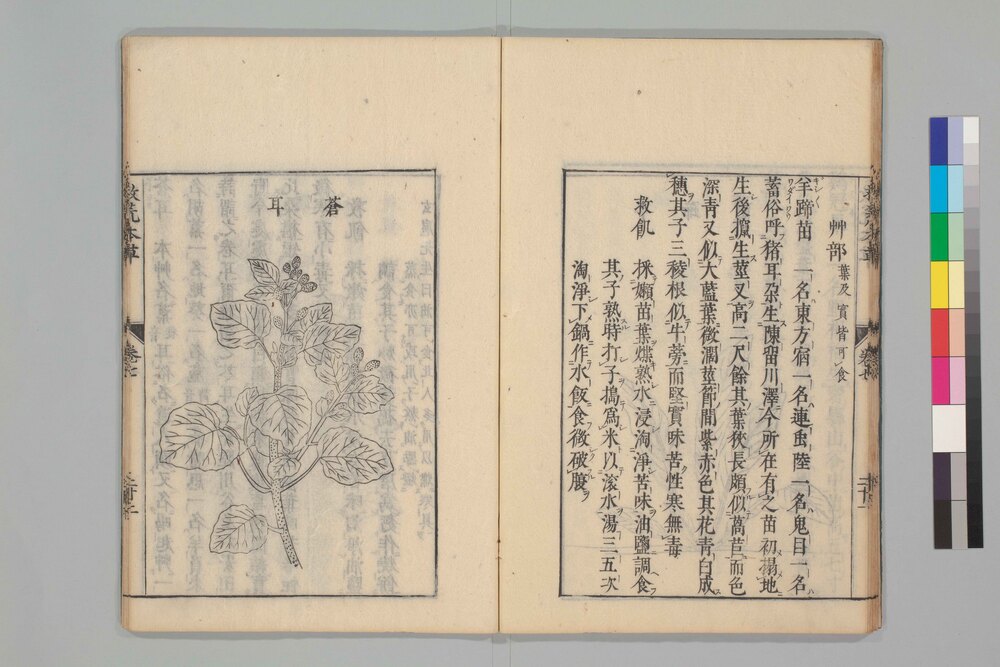 艸部 葉及實皆可食
羊蹄苗 一名東方宿一名連虫陸一名鬼目一名
蓄俗呼猪耳朶生陳留川澤今所在有之苗初搨地
生後攛生莖叉高二尺餘其葉狹長頗似萵苣而色
深青又似大藍葉微濶莖節間紫赤色其花青白成
穗其子三稜根似牛蒡而堅實味苦性寒無毒
救飢 採嫩苗葉煠熟水浸淘淨苦味油鹽調食
其子熟時打子搗爲米以滚水湯三五次
淘淨下鍋作水飯食微破腹
蒼耳